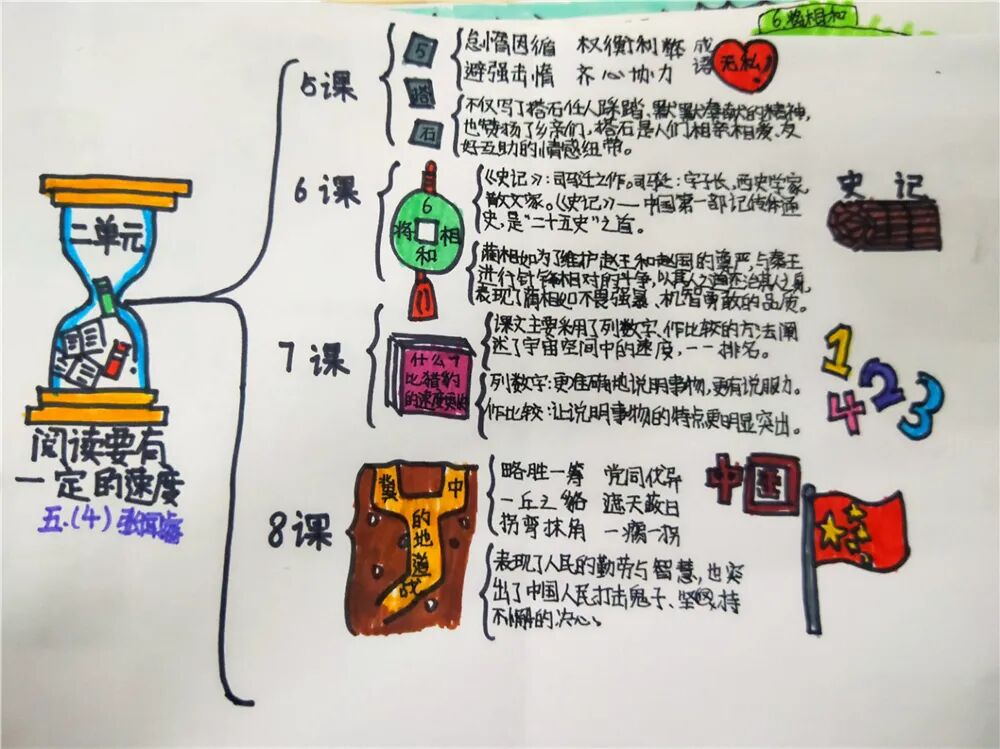 6将相和
二单元
阅读要有
一定的速度
五.(4)
5课
5
搭
石
怠惰因循 权衡利弊
避强击惰 齐心协力
成语
无私
不仅写了搭石任人踩踏、默默奉献的精神,
也赞扬了乡亲们,搭石是人们相亲相爱、友
好互助的情感纽带。
6课
6
将 相
和
《史记》:司马迁之作。司马迁:字子长,西史学家,
散文家。《史记》——中国第一部记传体通
史,是“二十五史”之首。
史记
蔺相如为了维护赵王和赵国的尊严,与秦王
进行针锋相对的斗争,以其人之道还治其人之身,
表现了蔺相如不畏强暴、机智勇敢的品质。
7课
什么
比猎豹
的速度更快
课文主要采用了列数字、作比较的方法阐
述了宇宙空间中的速度,一一排名。
列数字:更准确地说明事物,更有说服力。
作比较:让说明事物的特点更明显突出。
1
2
4 3
8课
冀中
的
地
道
战
略胜一筹 党同伐异
一丘之貉 遮天蔽日
拐弯抹角 一瘸一拐
中国
表现了人民的勤劳与智慧,也突
出了中国人民打击鬼子、坚持
不懈的决心。